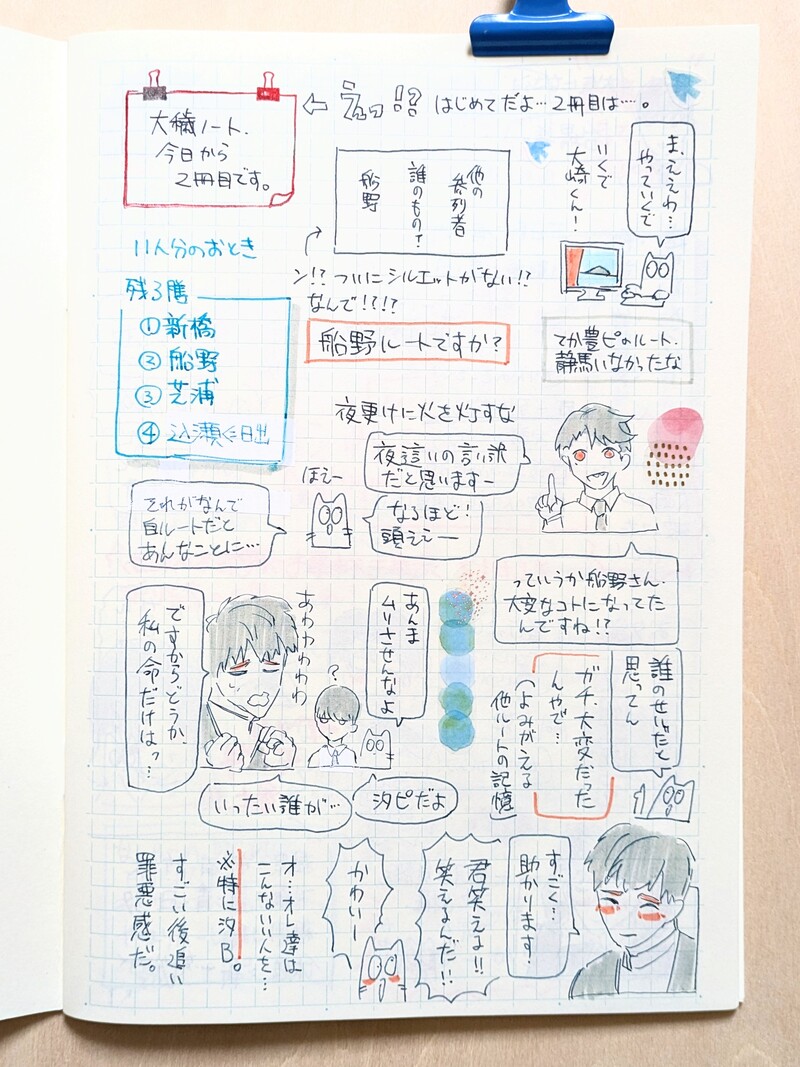 大穢ノート、
今日から
2冊目です。
⇦ えっ!? はじめてだよ…2冊目は…。
他の
参列者
誰のもの?
船野
いくで
大崎くん!
ま、ええわ…
やっていくで
ン!? ついにシルエットがない!?
なんで!?!?
11人分のおとき
残3膳
①新橋
②船野
③芝浦
④込瀬⇐日出
船野ルートですか?
てか豊ピのルート、
静馬いなかったな
夜更けに火を灯すな
夜這いの言い訳
だと思いますー
ほえー
なるほど!
頭ええー
それがなんで
自ルートだと
あんなことに…
っていうか船野さん、
大変なコトになってた
んですね!?
誰のせいだと
思ってん
ガチ、大変だった
んやで…
(よみがえる
他ルートの記憶)
あんま
ムリさせんなよ
あわわわわわ
ですからどうか、
私の命だけはっ…
?
いったい誰が…
汐ピだよ
すごく…
助かります!
君笑える!!
笑えるんだ!!
かわいー
オ…オレ達は
こんないい人を…
※特に汐B。
すごい後追い
罪悪感だ。